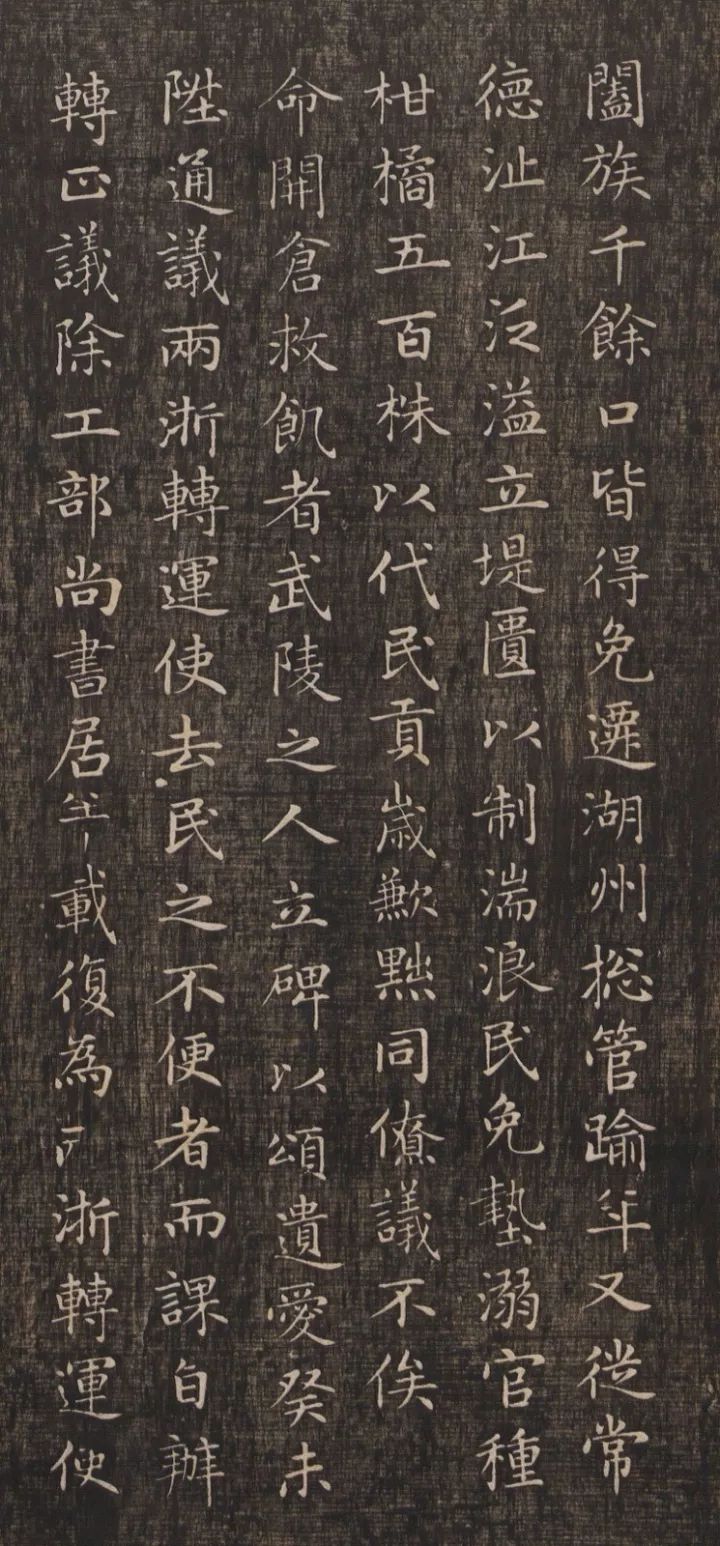 闔族千餘口皆得免遷湖州総管踰年又從常
德沚江泛溢立堤匽以制湍浪民免墊溺官種
柑橘五百株以代民貢歲歉黙同僚議不俟
命開倉救飢者武陵之人立碑以頌遺愛癸未
陞通議兩浙轉運使去民之不便者而課自辦
轉正議除工部尚書居年載復為浙轉運使